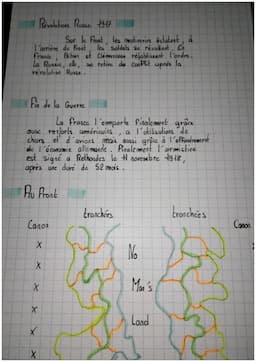 Révolution Russe 1917
Sur le Front, les mutineries éclatent, à
l'arrière du Front, les soldats se révoltent. En
France, Pétain et Clémenceau rétablissent l'ordre.
La Russie, elle, se retire du conflit après la
révolution Russe.
Fin de la Guerre
La France l'emporte finalement grâce
aux renforts américains, à l'utilisation de
chars et d'avions mais aussi grâce à l'effondrement
de l'économie allemande. Finalement l'armistice
est signé à Rethondes le 11 novembre 1918,
après une duré de 52 mois.
Au Front
tranchées tranchées
Canon Canon
X
X No
X Man's
X Land
X
X